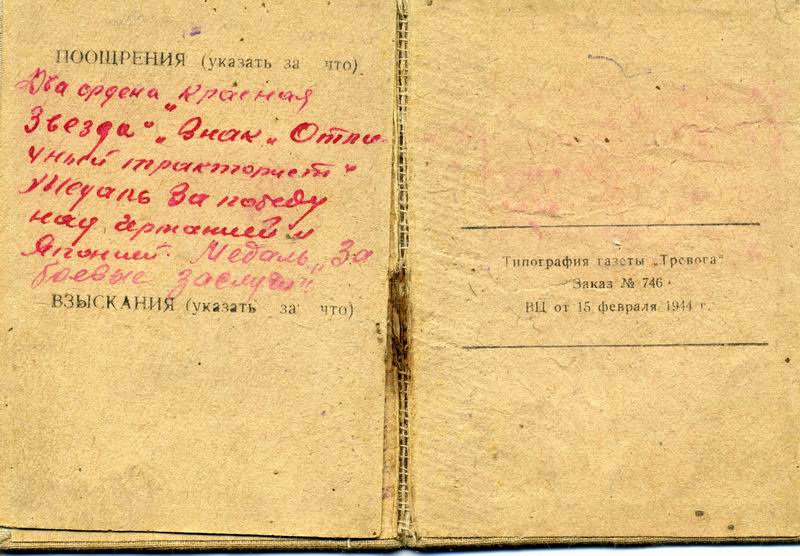 ПООЩРЕНИЯ (указать за что)
Два ордена „Красная
Звезда“ „Знак „Отли-
чный тракторист“
Медаль За победу
над Германией и
Японией. Медаль „За
боевые заслуги“
ВЗЫСКАНИЯ (указать за что)
Типография газеты „Тревога“
Заказ № 746
ВЦ от 15 февраля 1944 г.